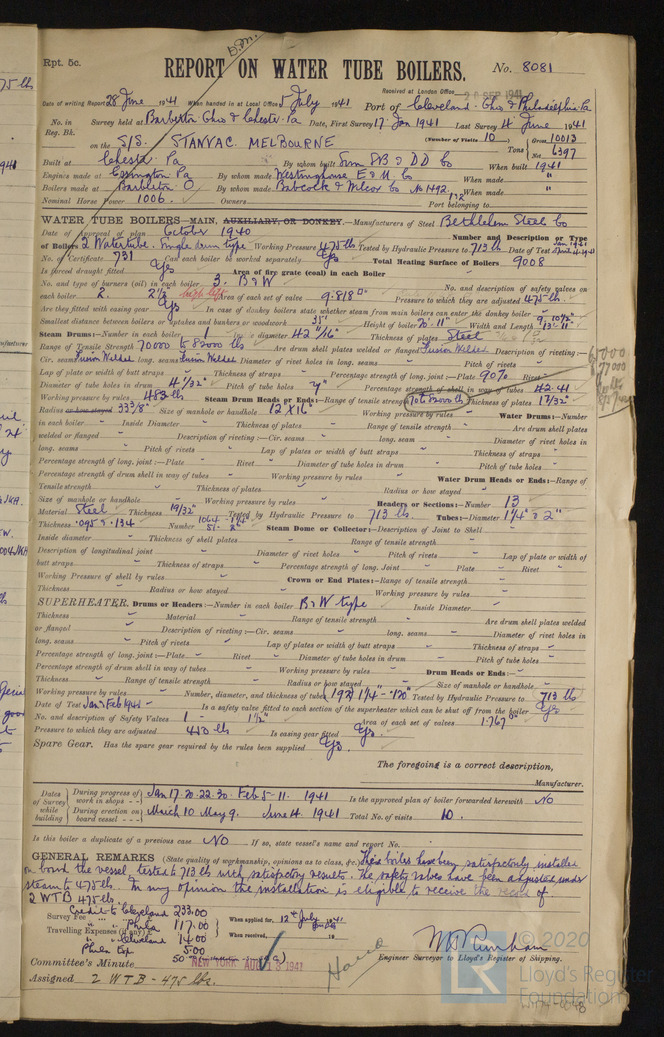 Rpt. 5c.
REPORT ON WATER TUBE BOILERS. No. 8081
Received at London Office 20 SEP 1941
Date of writing Report 28 June 1941 When handed in at Local Office 5 July 1941 Port of Cleveland - Ohio & Philadelphia Pa
No. in Reg. Bk. Survey held at Barberton Ohio & Chester Pa Date, First Survey 17 Jan 1941 Last Survey 4 June 1941
(Number of Visits 10)
on the S/S. STANVAC MELBOURNE Tons Gross 10013 Net 6397
Built at Chester Pa By whom built Sun SB & DD Co When built 1941
Engines made at Essington Pa By whom made Westinghouse E & M Co When made "
Boilers made at Barberton O By whom made Babcock & Wilcox Co No. 1492 When made "
Nominal Horse Power 1006. Owners Port belonging to
WATER TUBE BOILERS—MAIN, AUXILIARY, OR DONKEY.—Manufacturers of Steel Bethlehem Steel Co
Date of Approval of plan October 1940 Number and Description or Type
of Boilers 2 Watertube. Single drum type Working Pressure 475 lbs Tested by Hydraulic Pressure to 713 lb Date of Test
No. of Certificate 731 Can each boiler be worked separately Yes Total Heating Surface of Boilers 9008
Is forced draught fitted Yes Area of fire grate (coal) in each Boiler
No. and type of burners (oil) in each boiler 3. B & W No. and description of safety valves on
each boiler 2. 2½" high lift Area of each set of valves 9.818 □" Pressure to which they are adjusted 475 lb.
Are they fitted with easing gear Yes In case of donkey boilers state whether steam from main boilers can enter the donkey boiler
Smallest distance between boilers or uptakes and bunkers or woodwork Height of boiler Width and Length
Steam Drums:—Number in each boiler 1 Inside diameter 42 11/16" Thickness of plates Steel
Range of Tensile Strength 70000 to 82000 lb Are drum shell plates welded or flanged Fusion Welded Description of riveting:—
Cir. seams Fusion Welded long. seams Fusion Welded Diameter of rivet holes in long. seams Pitch of rivets
Lap of plate or width of butt straps Thickness of straps Percentage strength of long. joint:—Plate 90% Rivet
Diameter of tube holes in drum 4 1/32" Pitch of tube holes 7" Percentage strength of shell in way of tubes 42.41
Working pressure by rules 483 lb Steam Drum Heads or Ends:—Range of tensile strength 70 to 82000 lb Thickness of plates 1 7/32"
Radius or how stayed 33 3/8" Size of manhole or handhole 12 X 16" Working pressure by rules Water Drums:—Number
in each boiler Inside Diameter Thickness of plates Range of tensile strength Are drum shell plates
welded or flanged Description of riveting:—Cir. seams long. seam Diameter of rivet holes in
long. seams Pitch of rivets Lap of plates or width of butt straps Thickness of straps
Percentage strength of long. joint:—Plate Rivet Diameter of tube holes in drum Pitch of tube holes
Percentage strength of drum shell in way of tubes Working pressure by rules Water Drum Heads or Ends:—Range of
Tensile strength Thickness of plates Radius or how stayed
Size of manhole or handhole Working pressure by rules Headers or Sections:—Number 13
Material Steel Thickness 19/32" Tested by Hydraulic Pressure to 713 lb. Tubes:—Diameter 1¼" & 2"
Thickness .095 & .134 Number 1064 - 1¼" 51 - 2" Steam Dome or Collector:—Description of Joint to Shell
Inside diameter Thickness of shell plates Range of tensile strength
Description of longitudinal joint Diameter of rivet holes Pitch of rivets Lap of plate or width of
butt straps Thickness of straps Percentage strength of long. Joint Plate Rivet
Working Pressure of shell by rules Crown or End Plates:—Range of tensile strength
Thickness Radius or how stayed Working pressure by rules
SUPERHEATER. Drums or Headers:—Number in each boiler B & W type Inside Diameter
Thickness Material Range of tensile strength Are drum shell plates welded
or flanged Description of riveting:—Cir. seams long. seams Diameter of rivet holes in
long. seams Pitch of rivets Lap of plates or width of butt straps Thickness of straps
Percentage strength of long. joint:—Plate Rivet Diameter of tube holes in drum Pitch of tube holes
Percentage strength of drum shell in way of tubes Working pressure by rules Drum Heads or Ends:—
Thickness Range of tensile strength Radius or how stayed Size of manhole or handhole
Working pressure by rules Number, diameter, and thickness of tubes 192 1¼" - .120" Tested by Hydraulic Pressure to 713 lb
Date of Test Jan & Feb 1941 - Is a safety valve fitted to each section of the superheater which can be shut off from the boiler Yes
No. and description of Safety Valves 1 - 1½" Area of each set of valves 1.767 □"
Pressure to which they are adjusted lbs Is easing gear fitted Yes.
Spare Gear. Has the spare gear required by the rules been supplied Yes.
The foregoing is a correct description,
Manufacturer.
Dates of Survey while building During progress of work in shops - - Jan 17. 20. 22. 30. Feb 5 - 11. 1941 Is the approved plan of boiler forwarded herewith No
During erection on board vessel - - - March 10 May 9. June 4. 1941 Total No. of visits 10.
Is this boiler a duplicate of a previous case No If so, state vessel's name and report No.
GENERAL REMARKS (State quality of workmanship, opinions as to class, &c.) These boilers have been satisfactorily installed
on board the vessel tested to 713 lb with satisfactory results. The safety valves have been adjusted under
steam to 475 lb. In my opinion the installation is eligible to receive the record of
2 WTB 475 lb
Survey Fee Credit to Cleveland 233.00
" " " Phila 117.00 When applied for, 12th July 1941
Travelling Expenses (if any) £ " Cleveland 14.00 When received, 19
Phila Exp 5.00
Engineer Surveyor to Lloyd's Register of Shipping.
Committee's Minute NEW YORK AUG 13 1941
Assigned 2 WTB - 475 lbs.
© 2020
LR
Lloyd's Register
Foundation